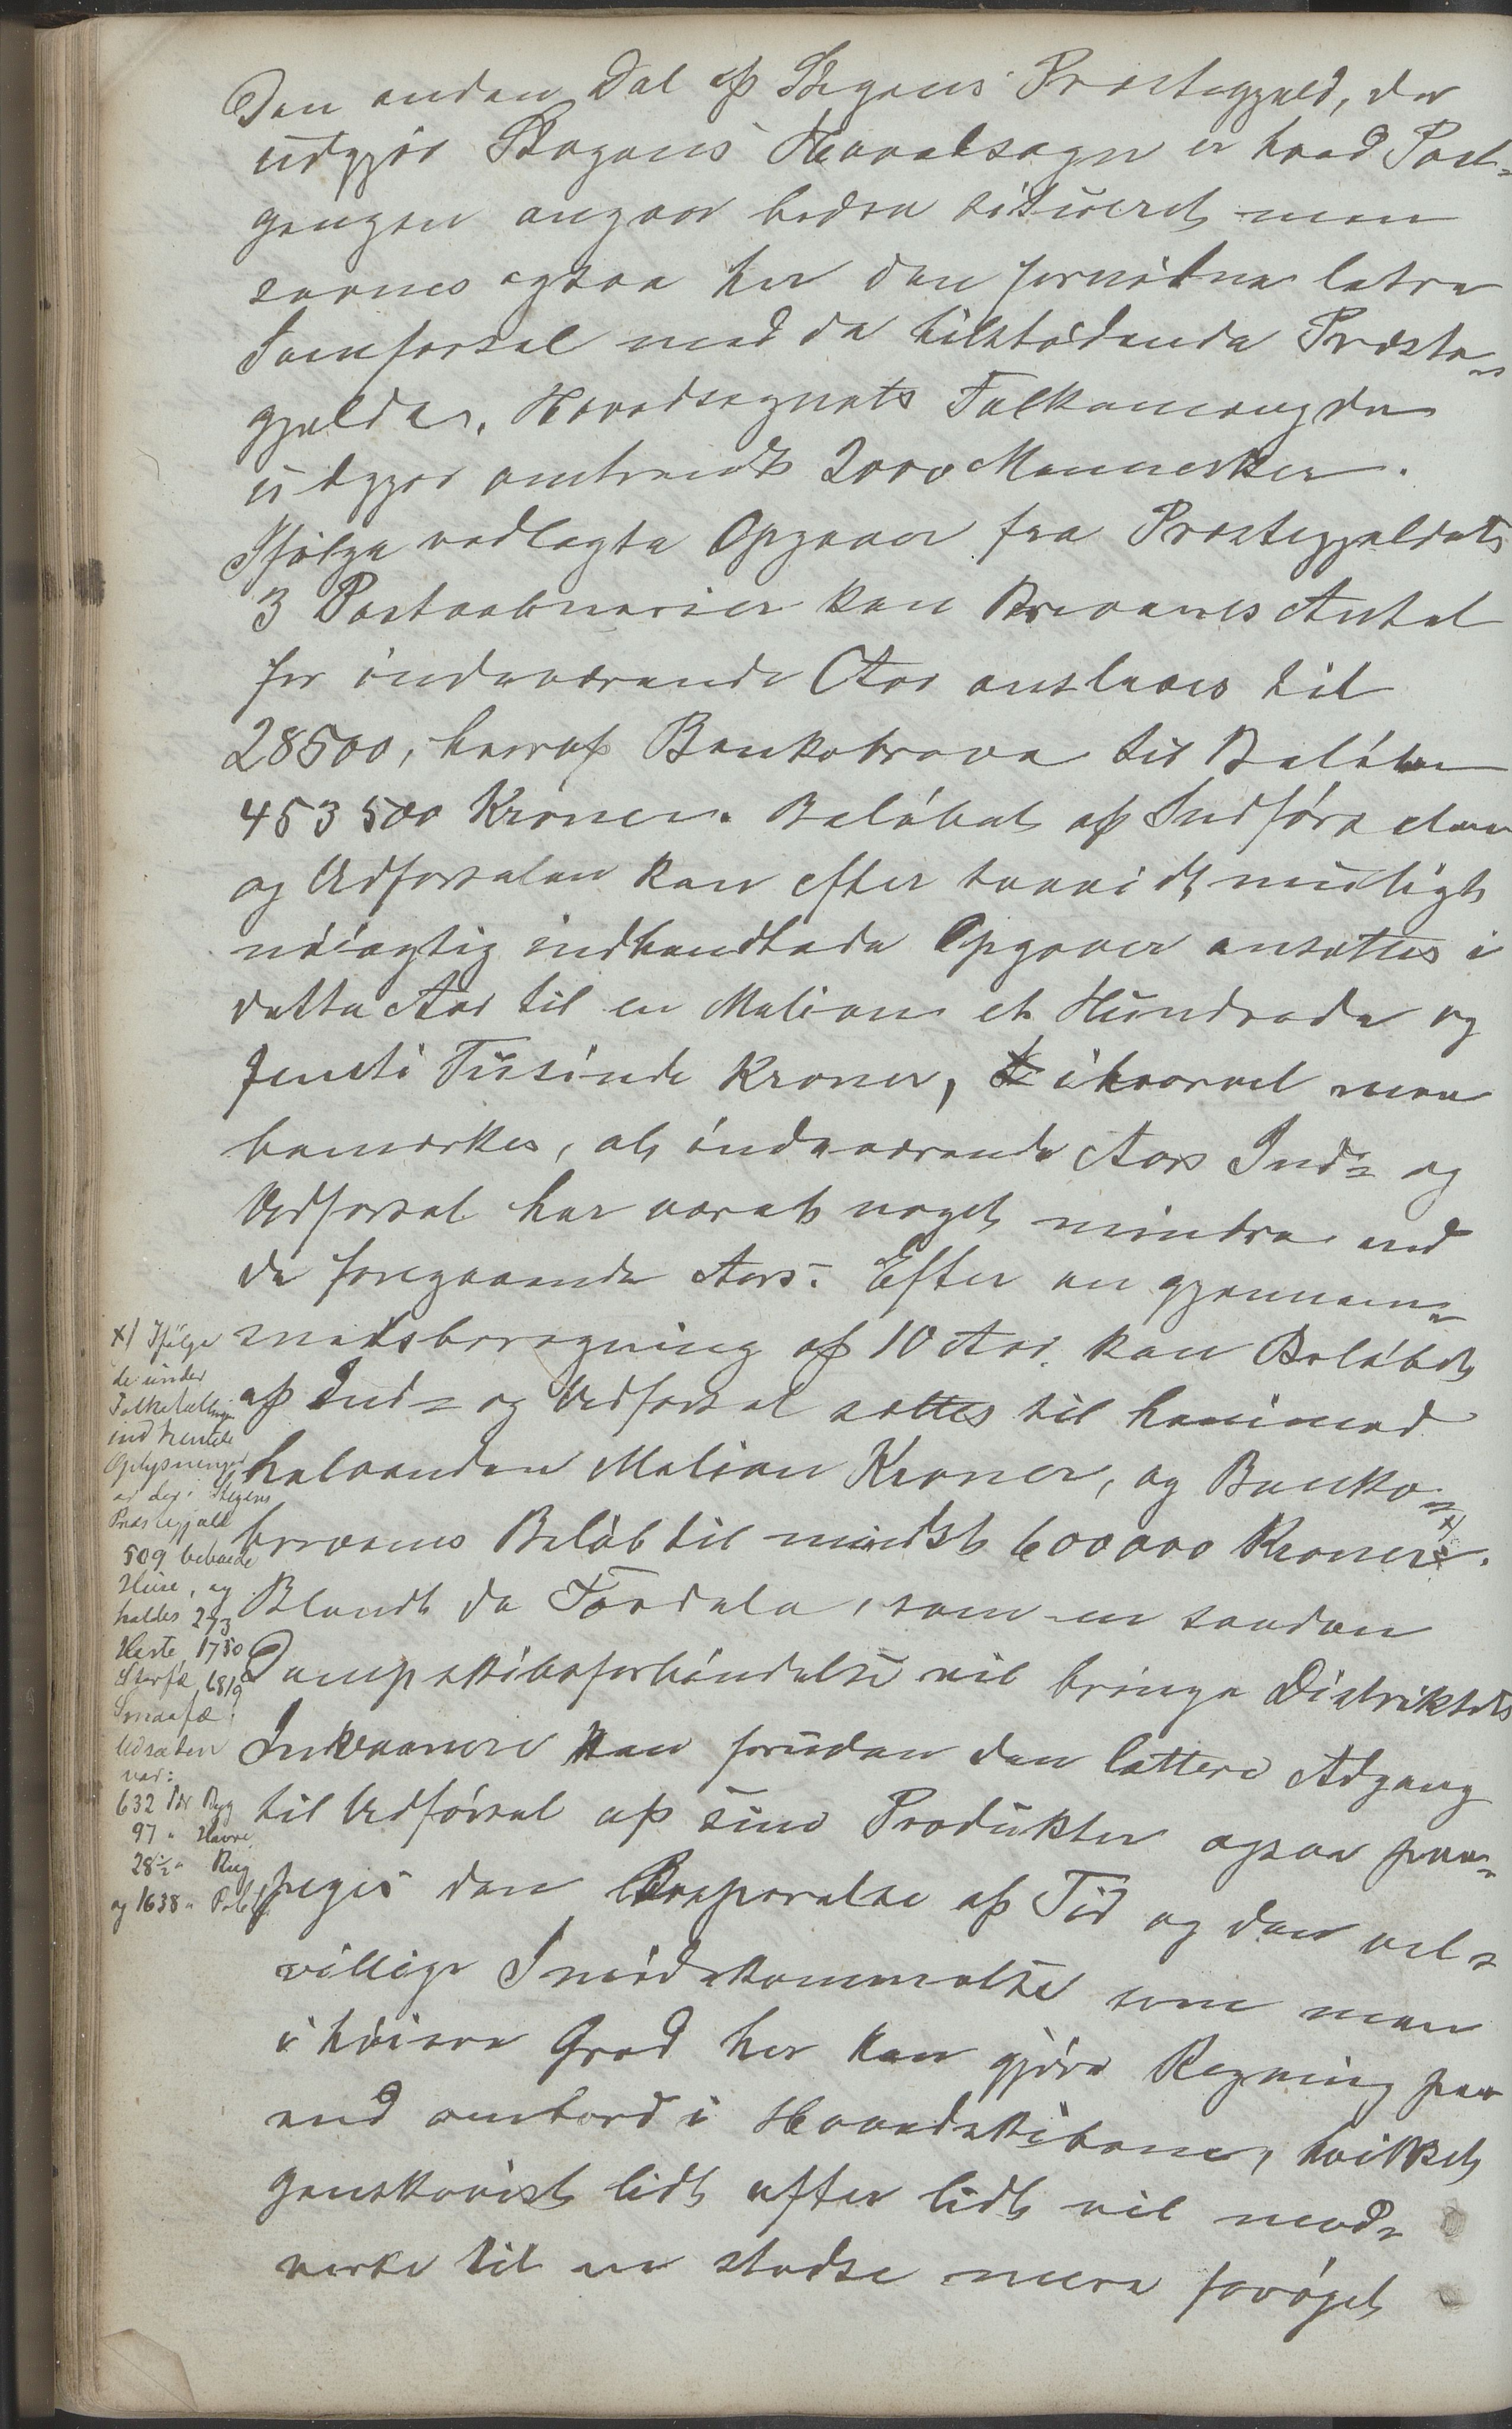 Den anden Del af Stegens Præstegjeld, der
udgjør Stegens Hovedsogn er hvad Post-
gangen angaar bedre situeret men
savnes ogsaa her den fornødne lettere
Samfærsel med de tilstødende Præste-
gjelde. Hovedsognets Folkemængde
udgjør omtrendt 2000 Mennesker.
Ifølge vedlagte Opgaver fra Præstegjeldets
3 Postaabnerier kan Brevenes Antal
for indeværende Aar anslaaes til
28500, heraf Bankobreve til Beløb
453500 Kroner. Beløbet af Indførselen
og Udførselen kan efter saavidt muligt
nøiagtig indhendtede Opgaver ansættes i
dette Aar til en Million et Hundrede og
femti Tusinde Kroner, ihvorvel maa
bemærkes, at indeværende Aars Ind- og
Udførsel har været noget mindre end
de foregaaende Aars. Efter en gjennem-
snitsberegning af 10 Aar kan Beløbet
af Ind- og Udførsel sættes til henimod
halvanden Million Kroner, og Banko-
brevenes Beløb til mindst 600000 Kroner x).
Blandt de Fordele, som en saadan
Dampskibsforbindelse vil bringe Distriktets
Indvaanere kan foruden den lettere Adgang
til Udførsel af sine Produkter ogsaa paa-
peges den Besparelse af Tid og den vel-
villige Imødekommelse som man
i høiere Grad her kan gjøre Regning paa
end ombord i Hovedskibene, hvilket
ganskevist lidt efter lidt vil med-
virke til en stedse mere forøget
x) Ifølge
de under
Folketællingen
indhentede
Oplysninger
er der i Stegens
Præstegjeld
509 beboede
Huse, og
holdes 273
Heste, 1750
Storfæ, 6819
Smaafæ.
Udsæden
var:
632 Tdr Byg
97 " Havre
28½ " Rug
og 1638 " Potet.